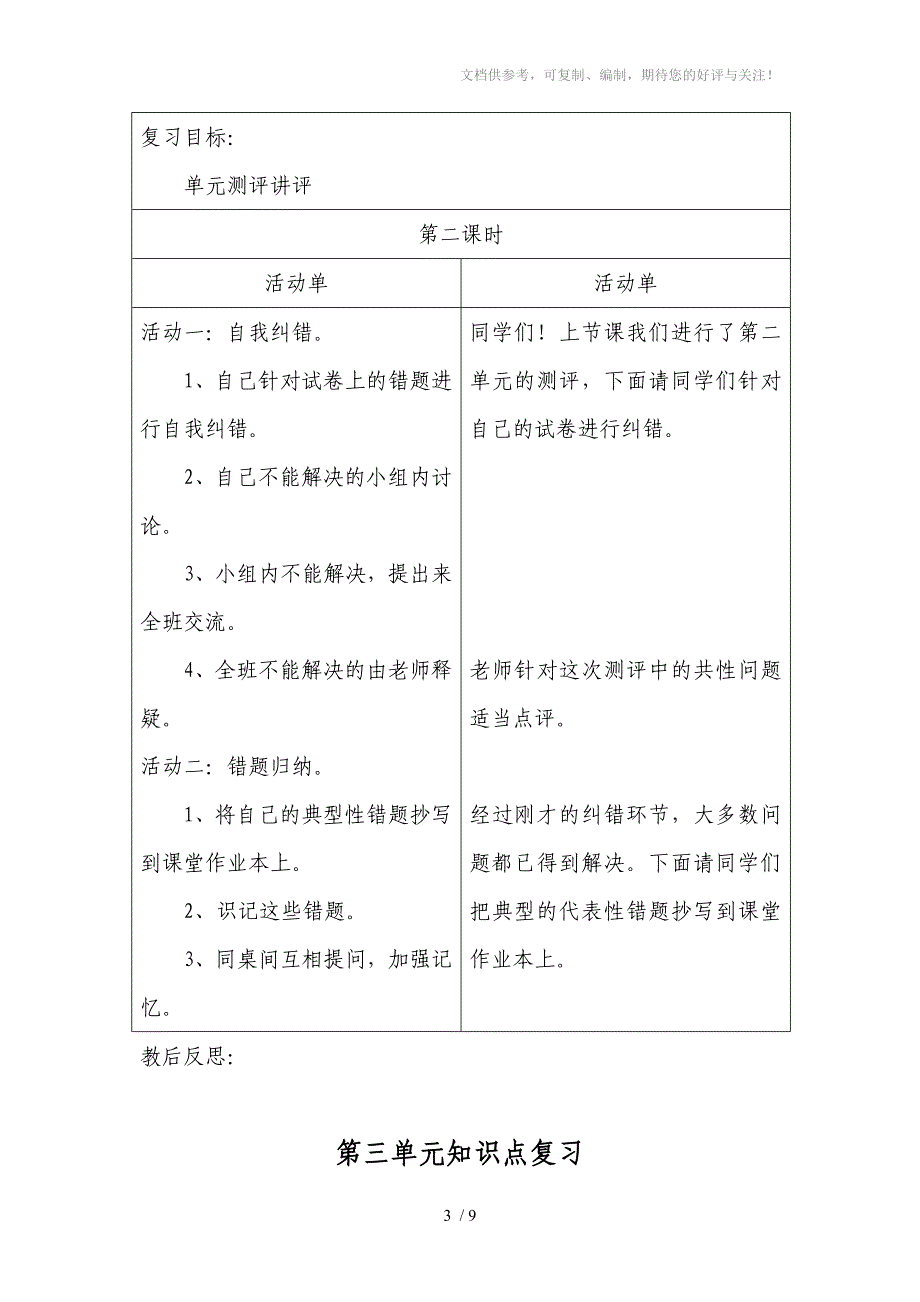 文档供参考，可复制、编制，期待您的好评与关注！
复习目标：
单元测评讲评
第二课时
活动单
活动单
活动一：自我纠错。
1、自己针对试卷上的错题进
行自我纠错。
2、自己不能解决的小组内讨
论。
3、小组内不能解决，提出来
全班交流。
4、全班不能解决的由老师释
疑。
活动二：错题归纳。
1、将自己的典型性错题抄写
到课堂作业本上。
2、识记这些错题。
3、同桌间互相提问，加强记
忆。
同学们！上节课我们进行了第二
单元的测评，下面请同学们针对
自己的试卷进行纠错。
老师针对这次测评中的共性问题
适当点评。
经过刚才的纠错环节，大多数问
题都已得到解决。下面请同学们
把典型的代表性错题抄写到课堂
作业本上。
教后反思：
第三单元知识点复习
3 / 9